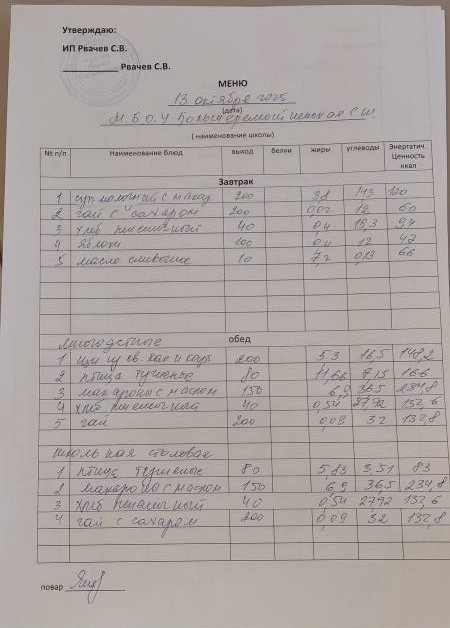 Утверждаю:
ИП Рвачев С.В.
Рвачев С.В.
МЕНЮ
13 октября 2025
(дата)
М.Б.О.У.
( наименование школы)
№ п/п Наименование блюд выход белки жиры углеводы Энергатич. Ценность ккал
Завтрак
1 суп молочный с макар 200 3,8 14,3 120
2 чай с сахаром 200 0,02 12 60
3 хлеб пшеничный 40 0,4 18,3 94
4 яблоки 100 0,4 12 47
5 масло сливочное 10 7,2 0,13 66
обед
1 щи из св. кап и карт 200 5,3 16,5 148,2
2 птица тушенье 80 11,66 7,15 166
3 макароны с маслом 150 6,9 36,5 234,8
4 хлеб пшеничный 40 0,54 27,72 132,6
5 чай 200 0,09 32 132,8
Школьная столовае
1 птица тушенье 80 5,83 3,51 83
2 макароны с маслом 150 6,9 36,5 234,8
3 хлеб пшеничный 40 0,54 27,72 132,6
4 чай с сахаром 200 0,09 32 132,8
повар